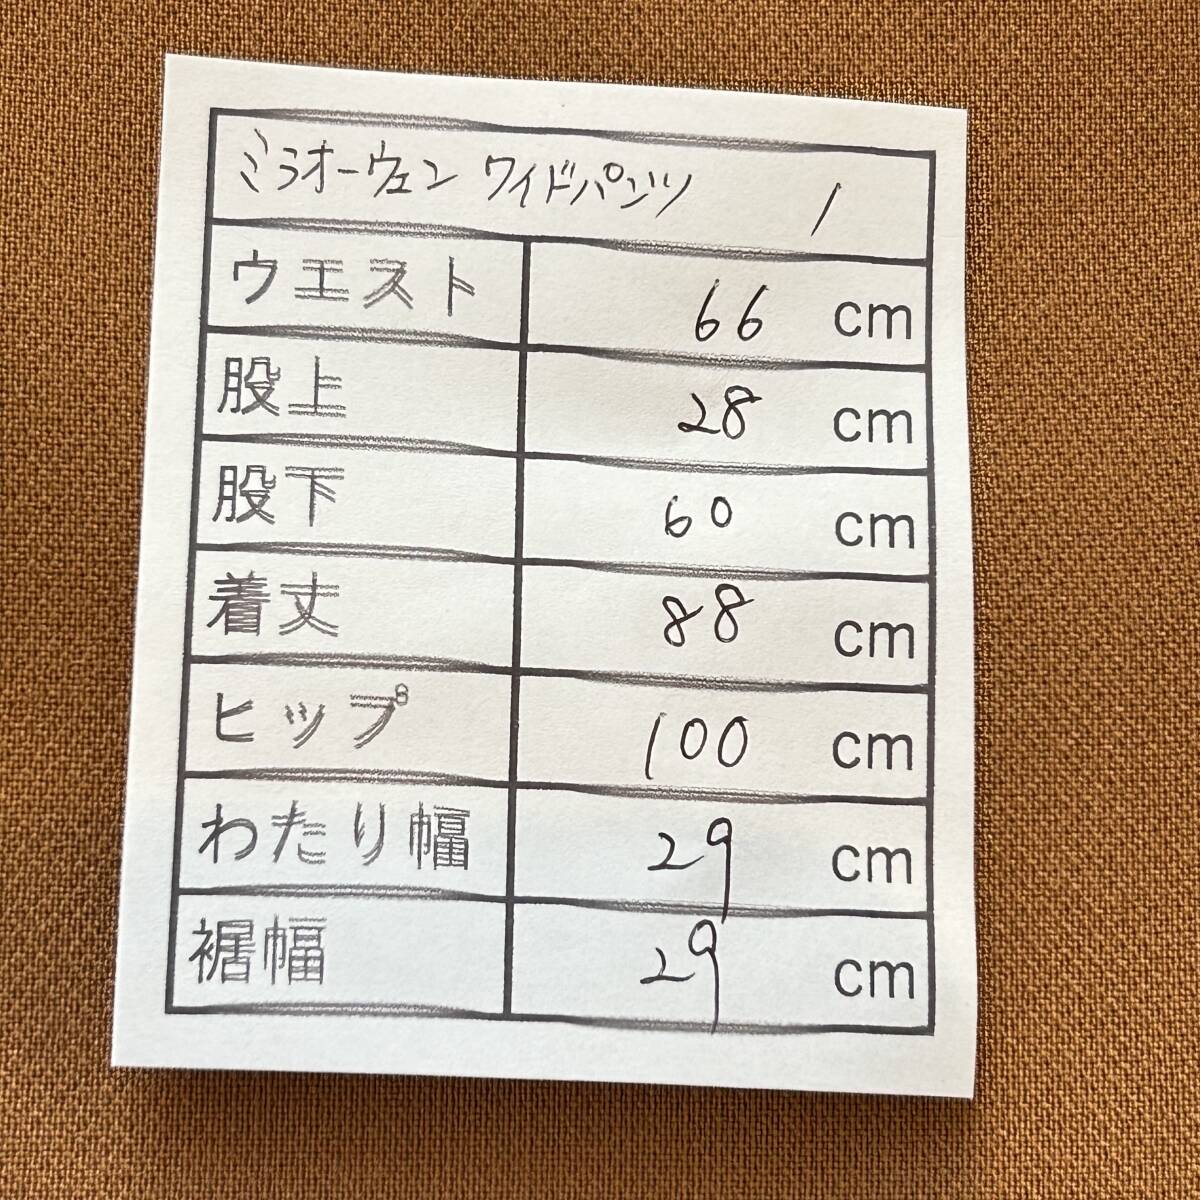 ミラオーウェン ワイドパンツ 1
ウエスト 66 cm
股上 28 cm
股下 60 cm
着丈 88 cm
ヒップ 100 cm
わたり幅 29 cm
裾幅 29 cm